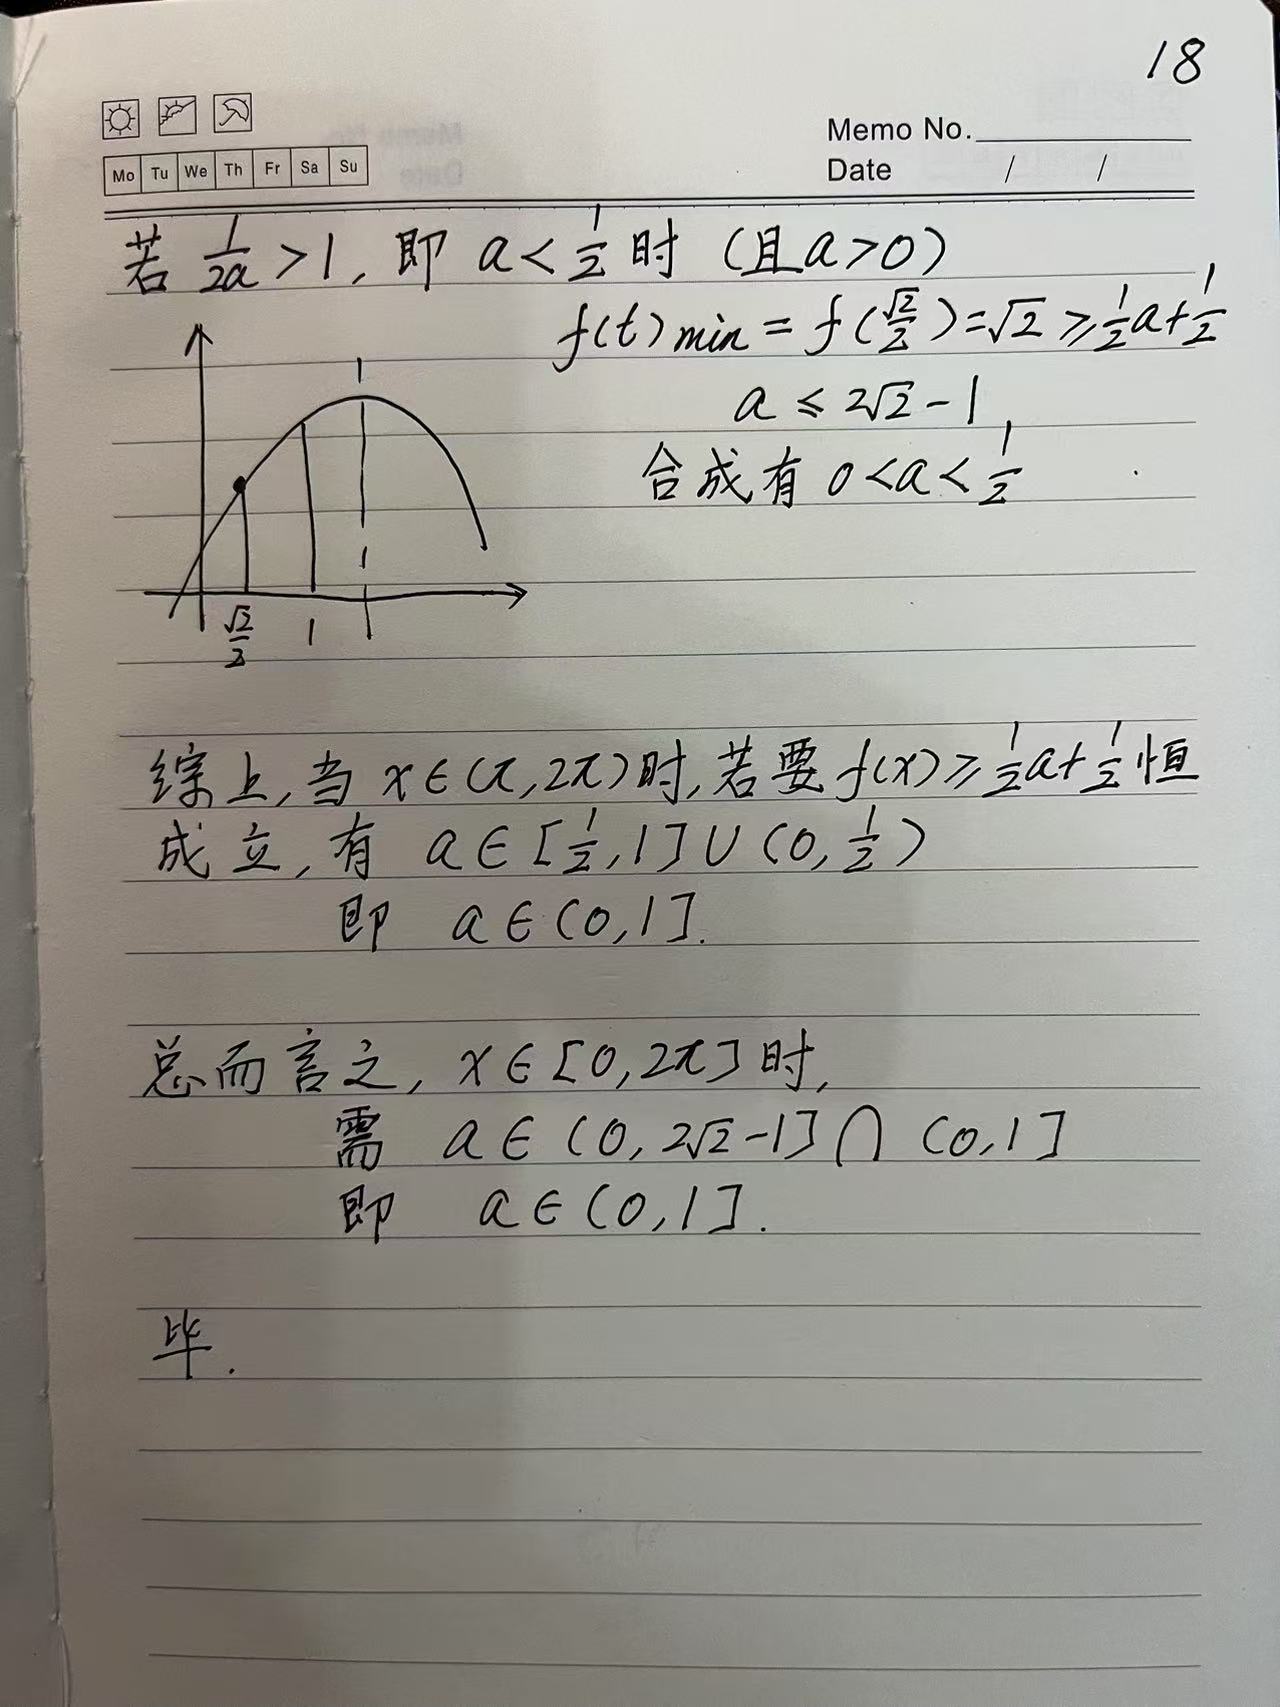 18
Memo No.
Mo Tu We Th Fr Sa Su
Date / /
若 1/2a > 1, 即 a < 1/2 时 (且a>0)
f(t)min = f(√2/2) = √2 ⩾ 1/2a + 1/2
a ⩽ 2√2 - 1
合成有 0 < a < 1/2
√2/2 1
综上, 当 x∈(π, 2π)时, 若要 f(x) ⩾ 1/2a + 1/2 恒
成立, 有 a∈[1/2, 1]∪(0, 1/2)
即 a∈(0, 1].
总而言之, x∈[0, 2π]时,
需 a∈(0, 2√2-1]∩(0, 1]
即 a∈(0, 1].
毕.